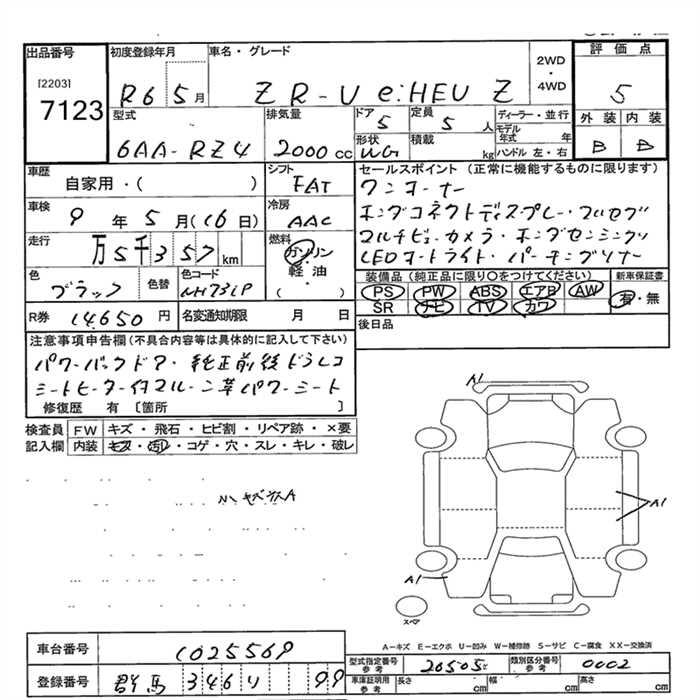 出品番号
[2203]
7123
初度登録年月
R6 5月
車名・グレード
ZR-V e:HEV Z
2WD
・
4WD
評価点
5
外装 内装
B B
型式
6AA-RZ4
排気量
2000cc
ドア
5
定員
5人
ディーラー・並行
モデル年式 年
形状
WG
積載 kg
ハンドル 左・右
車歴
自家用・( )
シフト
FAT
車検
9年5月(16日)
冷房
AAC
走行
万5千357km
燃料
ガソリン
・
軽油
・
( )
色
ブラック
色替
色コード
NH731P
R券 14650円
名変通知期限 月 日
セールスポイント(正常に機能するものに限ります)
ワンオーナー
ホンダコネクトディスプレー・フルセグ
マルチビューカメラ・ホンダセンシング
LEDオートライト・パーキングソナー
装備品(純正品に限り○をつけてください)
PS PW ABS エアB AW
SR ナビ TV カワ
新車保証書
有・無
後日品
注意事項申告欄(不具合内容等は具体的に記入して下さい)
パワーバックドア・純正前後ドラレコ
シートヒーター付マルーン革パワーシート
修復歴 有 〔箇所 〕
検査員記入欄
FW キズ・飛石・ヒビ割・リペア跡・×要
内装 キズ・汚レ・コゲ・穴・スレ・キレ・破レ
A1
A1
A1
スペア
A－キズ E－エクボ U－凹み W－補修跡 S－サビ C－腐食 XX－交換済
車台番号 1025569
登録番号 群馬 346 り 99
型式指定番号 参考 20505
類別区分番号 参考 0002
車庫証明用 参考 長さ cm 幅 cm 高さ cm